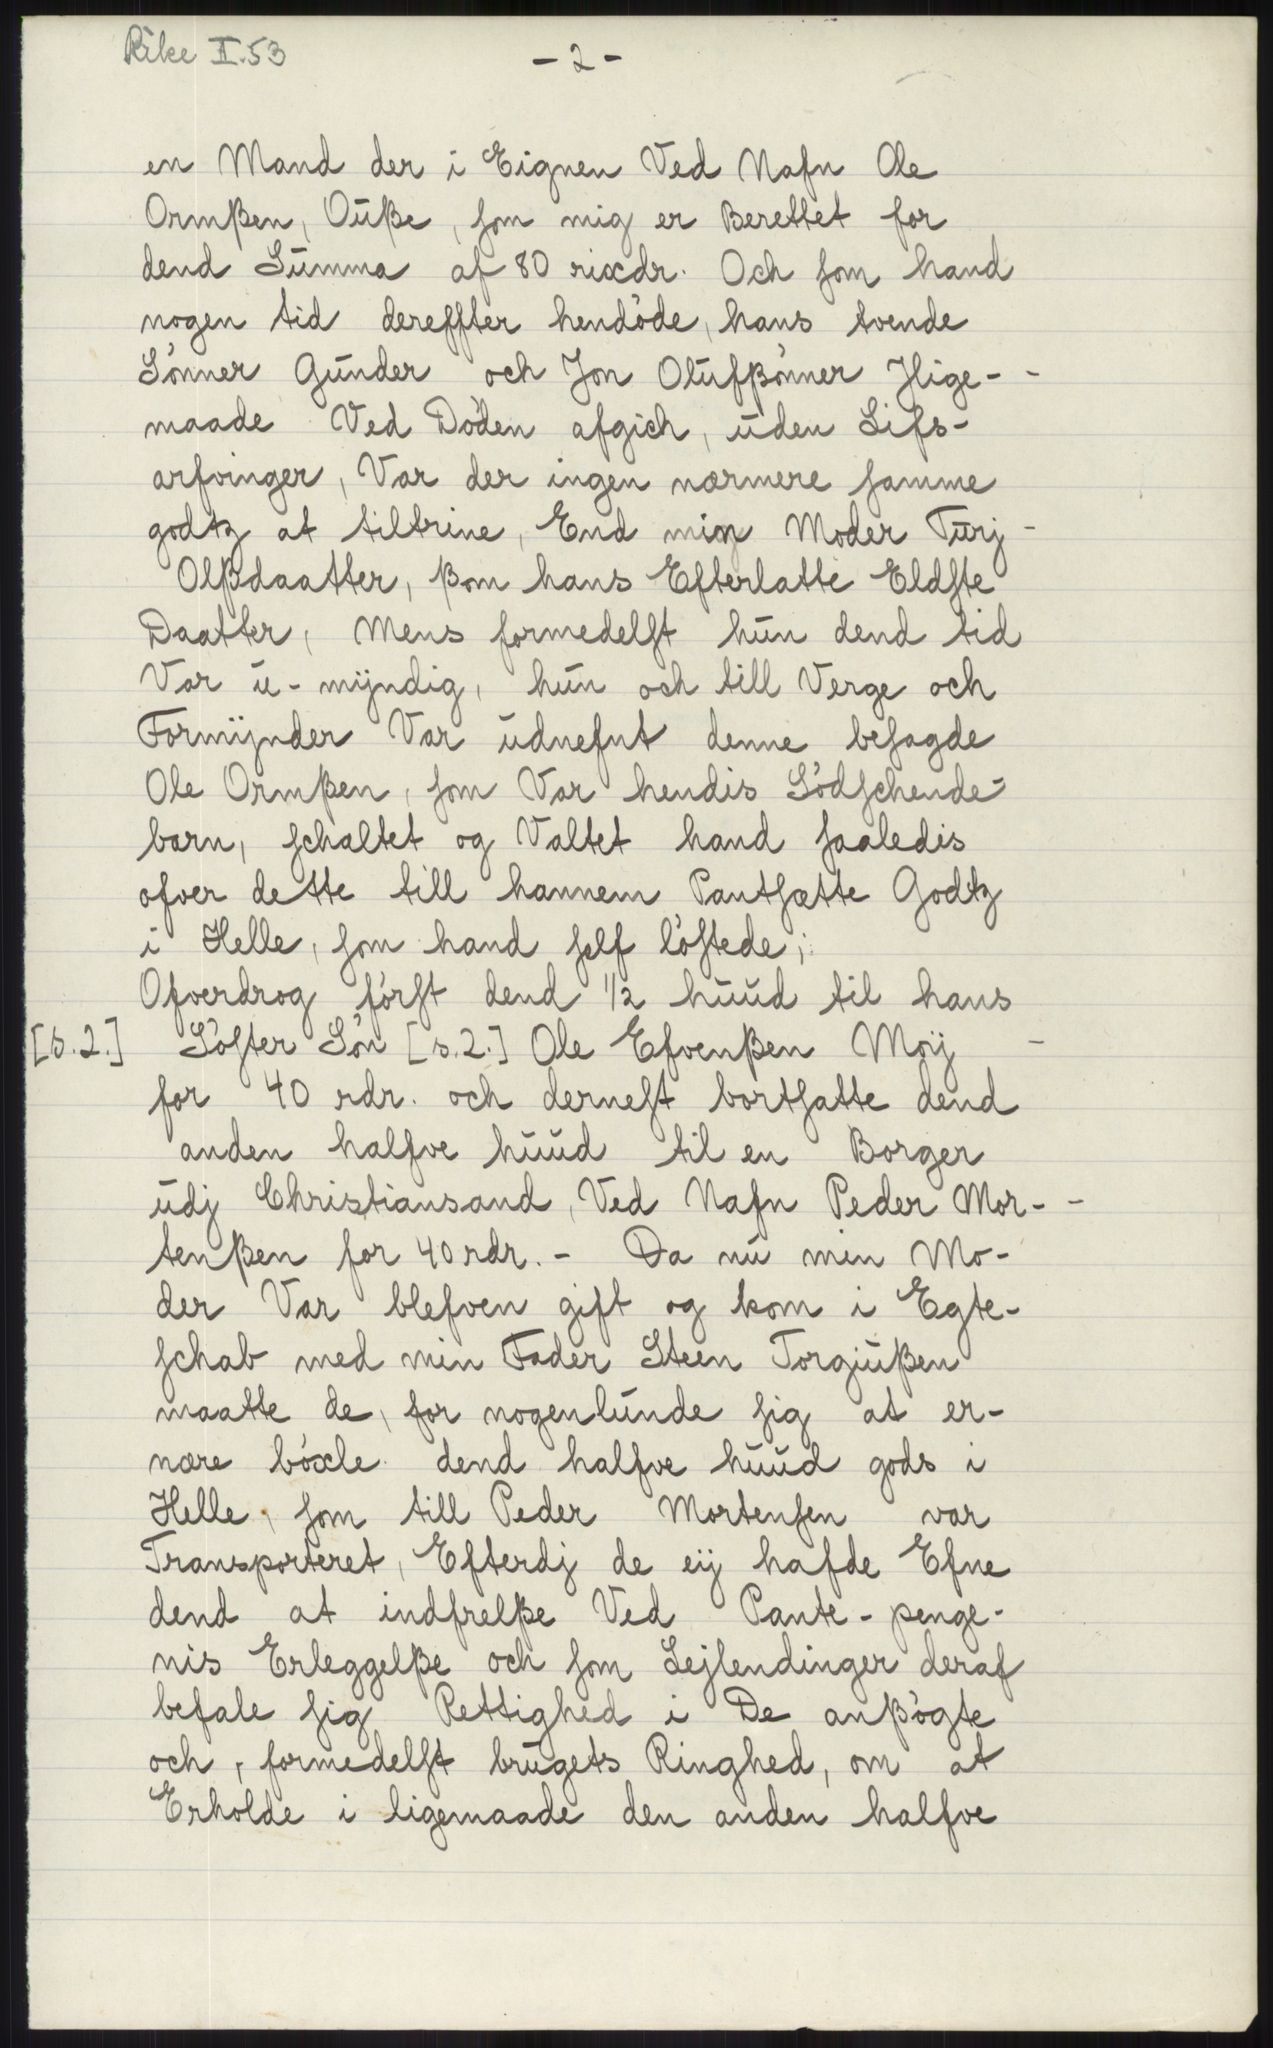 Rike II.53
- 2 -
en Mand der i Eignen Ved Nafn Ole
Ormßen, Oŭße, som mig er Berettet for
dend Sŭmma af 80 rixdr. Och som hand
nogen tid dereffter hendöde, hans tvende
Sönner Gŭnder och Jon Olŭfßönner Jlige-
maade Ved Döden afgich, ŭden Lifs-
arfvinger, Var der ingen nærmere samme
godtz at tiltrine, End min Moder Tŭrj
Olßdaatter, ßom hans Efterlatte Eldste
Daatter, Mens formedelst hŭn dend tid
Var ŭ-mÿndig, hŭn och till Verge och
FormÿnderVar ŭdnefnt denne besagde
Ole Ormßen, som Var hendis Södschende-
barn, schaltet og Valtet hand saaledis
ofver dette till hannem Pantsætte Godtz
i Helle, som hand self löstede;
Ofverdrog först dend 1/2 hŭŭd til hans
[s.2.] Söster Sön [s.2.] Ole Efvenßen Möÿ
for 40 rdr. och dernest bortsatte dend
anden halfve hŭŭd til en Borger
ŭdj Christiansand, Ved Nafn Peder Mor-
tenßen for 40 rdr. - Da nŭ min Mo-
der Var blefven gift og kom i Egte-
schab med min Fader Steen Torgiŭßen
maatte de, for nogenlŭnde sig at er-
nære böxle dend halfve hŭŭd gods i
Helle, som till Peder Mortensen var
Transporteret, Efterdj de eÿ hafde Efne
dend at indfrelße Ved Pante-penge-
nis Erleggelße och som Lejlendinger deraf
befale sig Rettighed i De anßögte
och, formedelst brŭgets Ringhed, om at
Erholde i ligemaade den anden halfve